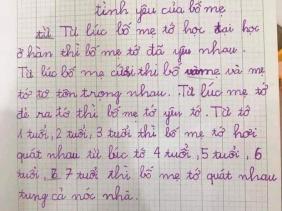 tình yêu của bố mẹ
từ Từ lúc bố mẹ tớ học đại học
ở hàn thì bố mẹ tớ đã yêu nhau.
Từ lúc bố mẹ cưới thì bố và mẹ
tớ tớ tôn trọng nhau. Từ lúc mẹ tớ
đẻ ra tớ thì bố mẹ tớ yêu tớ. Từ tớ
1 tuổi, 2 tuổi, 3 tuổi thì bố mẹ tớ hơi
quát nhau từ lúc tớ 4 tuổi, 5 tuổi, 6
tuổi, 7 tuổi thì bố mẹ tớ quát nhau
tung cả nóc nhà.